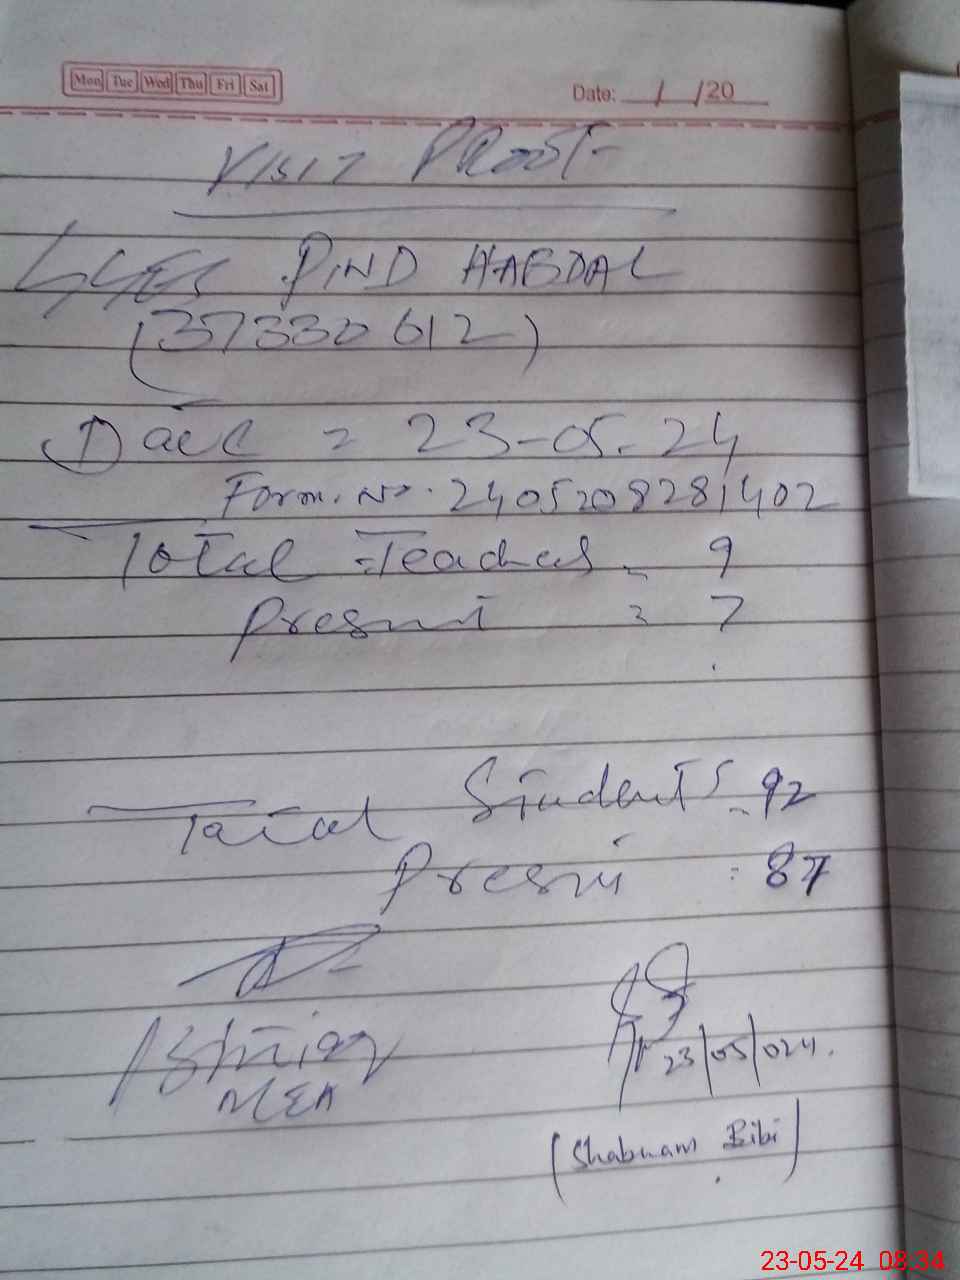 Mon Tue Wed Thu Fri Sat
Date: / /20
VISIT PROOF
PIND HABDAL
(37330612)
Date = 23-05-24
Form. No. 2405208281402
Total Teachers = 9
Present = 7
Total Students = 92
Present : 87
MEA
23/05/024.
(Shabnam Bibi)
23-05-24 08:34